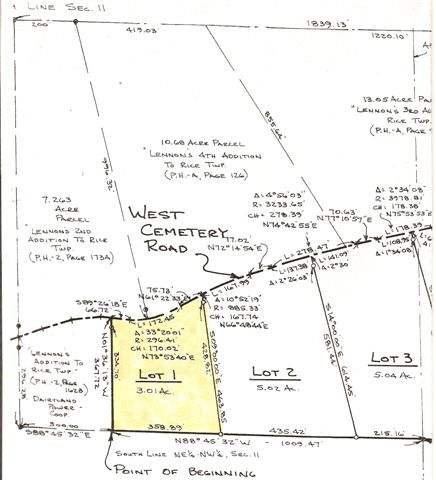 LINE SEC. 11
200'
419.03'
1839.13'
1220.10'
855.64'
10.68 ACRE PARCEL
"LENNON'S 4TH ADDITION
TO RICE TWP.
(P.H.-A, PAGE 126)
13.05 ACRE PA
"LENNON'S 3RD AD
RICE TWP.
(P.H.-A, PAGE
7.263
ACRE
PARCEL
"LENNON'S 2ND
ADDITION TO RICE
TWP."
(P.H.-2, PAGE 173A)
WEST
CEMETERY
ROAD
Δ: 4°56'03"
R: 3233.65'
CH: 278.39'
N74°42'55"E
70.63'
N77°10'57"E
Δ: 2°34'08"
R: 3978.81'
CH: 178.38'
N75°53'53"E
77.02'
N72°14'54"E
L: 278.47'
L: 137.38'
Δ: 2°26'03"
L: 141.09'
Δ: 2°30'
L: 178.39'
L: 108.95'
Δ: 1°34'08"
75.73'
N61°22'33"E
L: 167.99'
S89°26'18"E
66.72'
L: 172.45'
Δ: 33°20'01"
R: 296.41'
CH: 170.02'
N73°53'40"E
Δ: 10°52'19"
R: 885.33'
CH: 167.74'
N66°48'44"E
"LENNON'S
ADDITION TO
RICE TWP."
(P.H.-2, PAGE
162B)
DAIRYLAND
POWER
COOP
LOT 1
3.01 AC.
LOT 2
5.02 AC.
LOT 3
5.04 AC.
428.81'
463.85'
581.44'
614.45'
300.00'
S88°45'32"E
358.89'
435.42'
215.16'
N88°45'32"W
1009.47'
SOUTH LINE NE¼-NW¼, SEC. 11
POINT OF BEGINNING